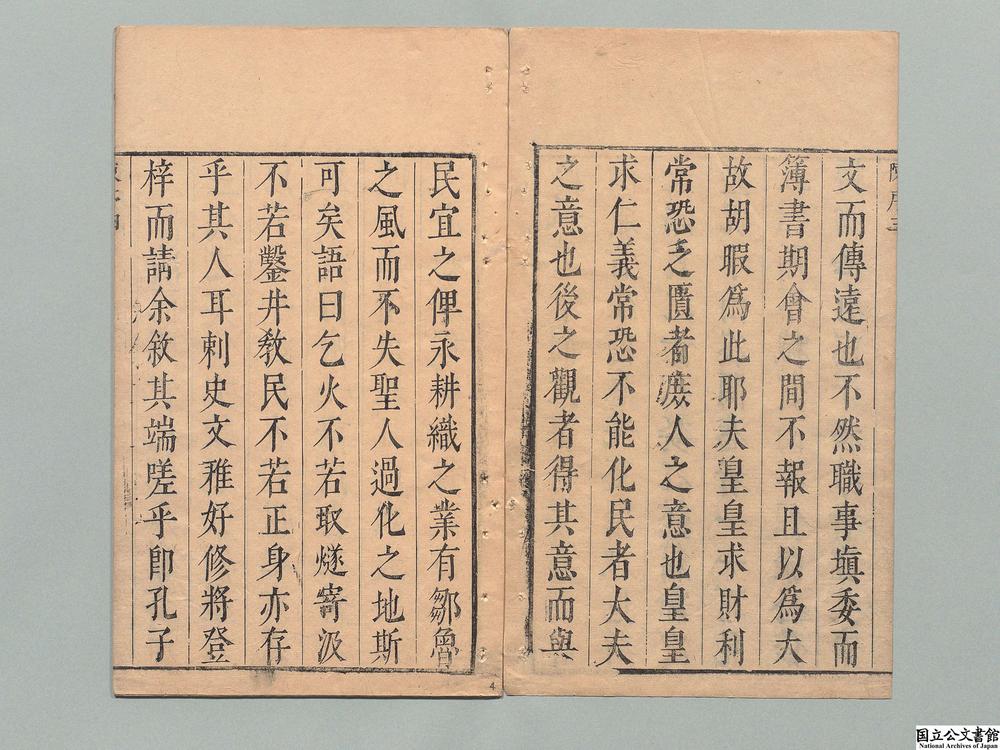 文而傳遠也不然職事塡委而
簿書期會之間不報且以爲大
故胡暇爲此耶夫皇皇求財利
常恐乏匱者庻人之意也皇皇
求仁義常恐不能化民者大夫
之意也後之觀者得其意而與
民宜之俾永耕織之業有鄒魯
之風而不失聖人過化之地斯
可矣語曰乞火不若取燧寄汲
不若鑿井敎民不若正身亦存
乎其人耳刺史文雅好修將登
梓而請余敘其端嗟乎卽孔子
4
国立公文書館
National Archives of Japan